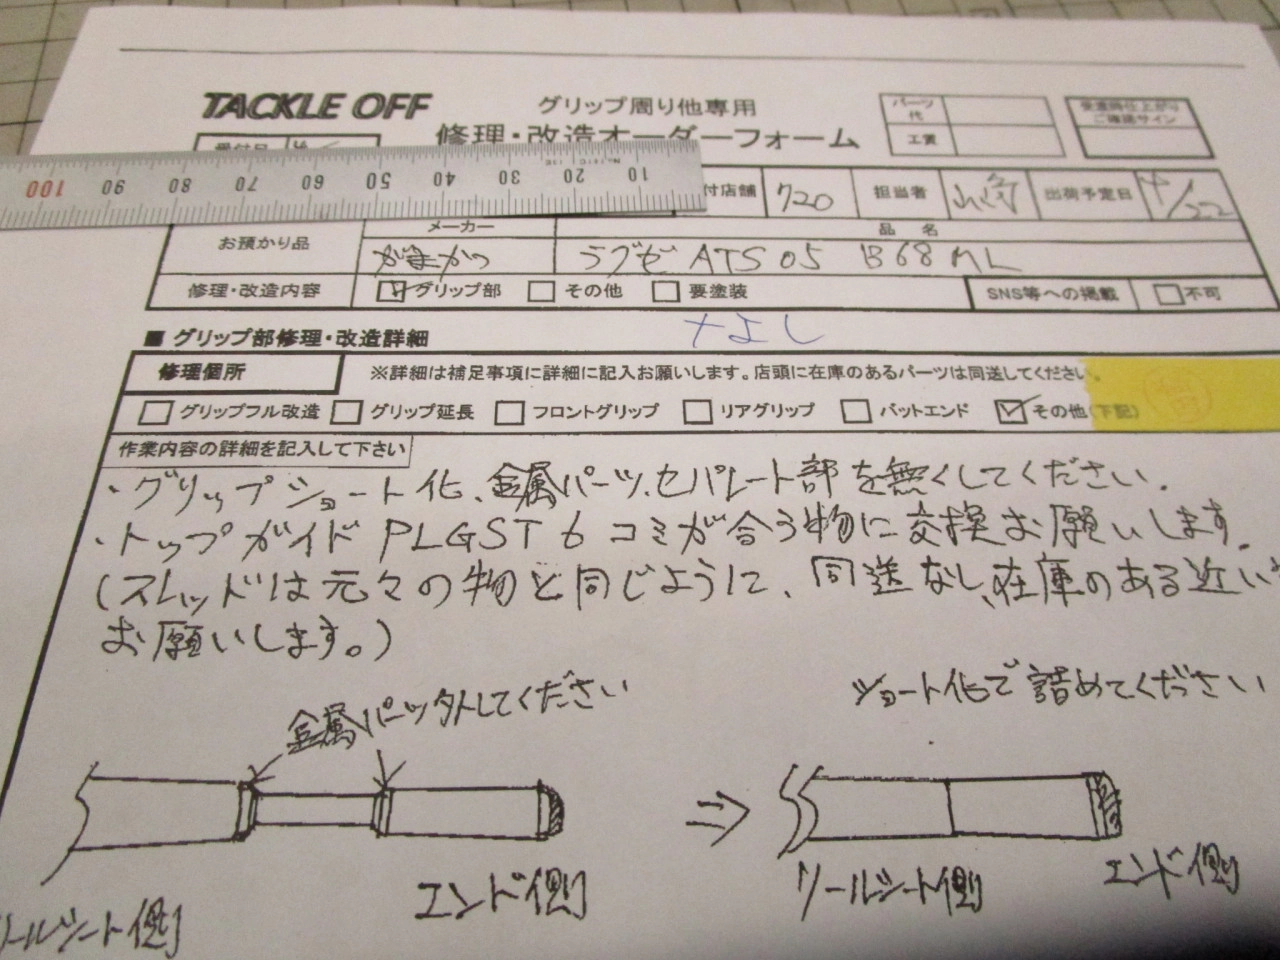 TACKLE OFF グリップ周り他専用
修理・改造オーダーフォーム
パーツ代
工賃
受渡時仕上がりご確認サイン
受付日
付店舗 720 担当者 山崎 出荷予定日 4/22
お預かり品
メーカー
品名
がまかつ
ラグゼ ATS 05 B68ML
修理・改造内容 グリップ部 その他 要塗装
SNS等への掲載 不可
■ グリップ部修理・改造詳細
修理個所 ※詳細は補足事項に詳細に記入お願いします。店頭に在庫のあるパーツは同送してください。
グリップフル改造 グリップ延長 フロントグリップ リアグリップ バットエンド その他(下記)
作業内容の詳細を記入して下さい
・グリップショート化、金属パーツ、セパレート部を無くしてください。
・トップガイド PLGST 6 コミが合う物に交換お願いします。
(スレッドは元々の物と同じように、同送なし、在庫のある近い
お願いします。)
金属パーツ外してください
ショート化で詰めてください
リールシート側
エンド側
リールシート側
エンド側
100 90 80 70 60 50 40 30 20 10